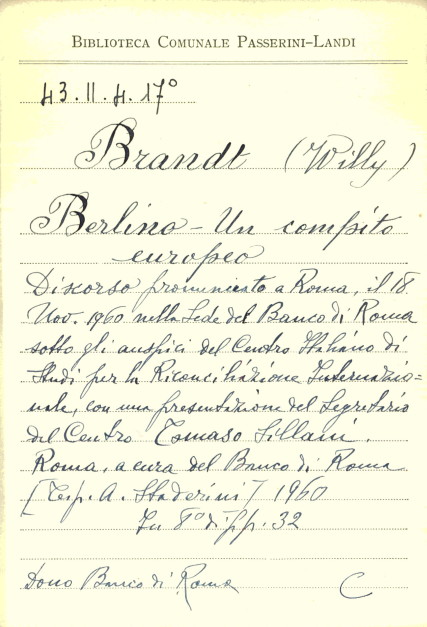 BIBLIOTECA COMUNALE PASSERINI-LANDI
43.II.4.17°
Brandt (Willy)
Berlino - Un compito
europeo
Discorso pronunciato a Roma, il 18
Nov. 1960 nella Sede del Banco di Roma
sotto gli auspici del Centro Italiano di
Studi per la Riconciliazione Internazio=
nale, con una presentazione del Segretario
del Centro Tomaso Sillani.
Roma, a cura del Banco di Roma
[Tip. A. Staderini] 1960
In 8° di pp. 32
Dono Banco di Roma C